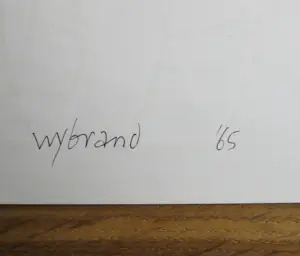 wybrand '65